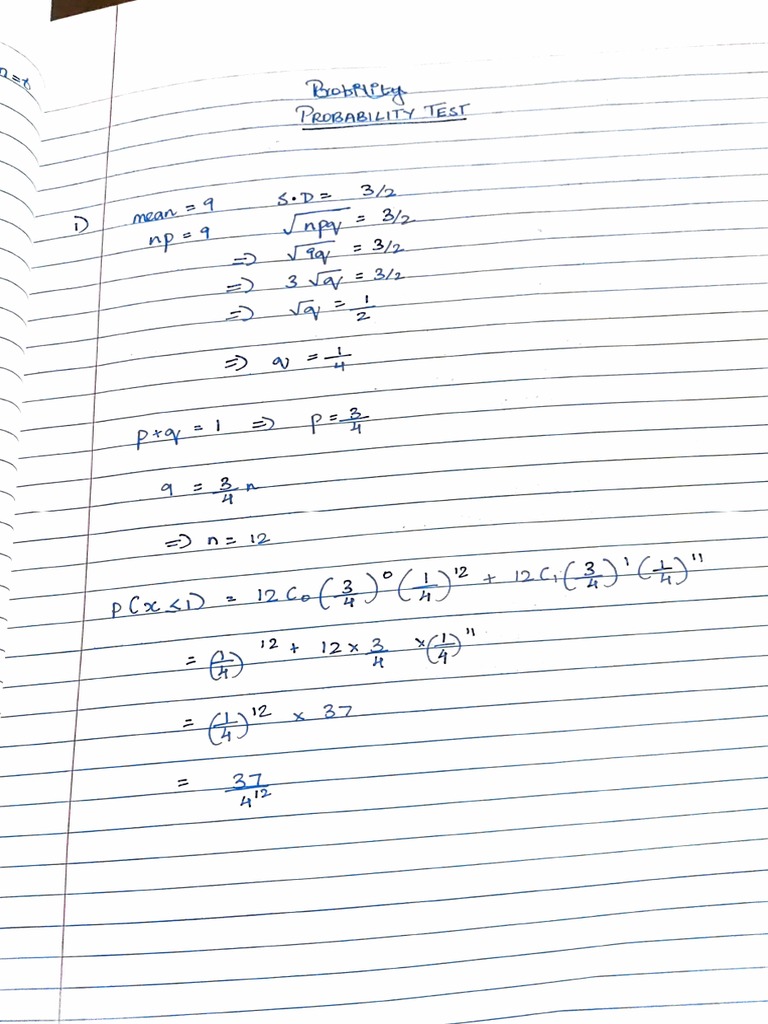 n=x
Probility
PROBABILITY TEST
1) mean = 9 S.D = 3/2
np = 9 √npq = 3/2
=> √9q = 3/2
=> 3√q = 3/2
=> √q = 1/2
=> q = 1/4
p+q = 1 => p = 3/4
9 = 3/4 n
=> n = 12
P(x≤1) = 12C₀(3/4)⁰(1/4)¹² + 12C₁(3/4)¹(1/4)¹¹
= (1/4)¹² + 12×3/4 ×(1/4)¹¹
= (1/4)¹² × 37
= 37/4¹²